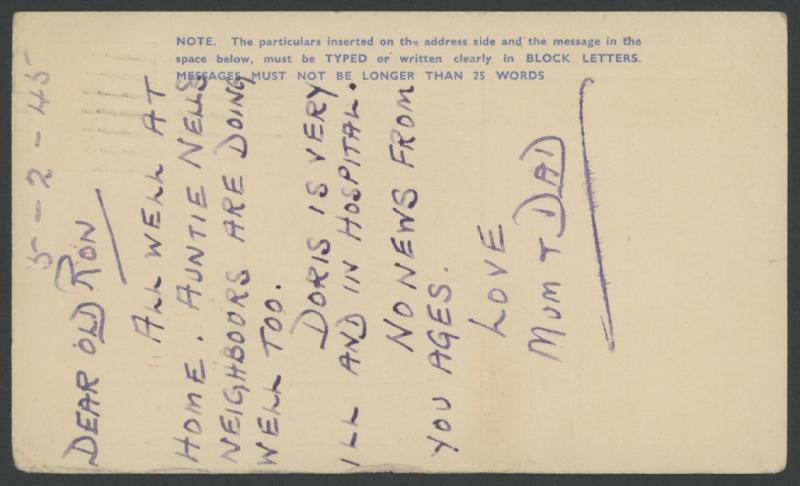 NOTE. The particulars inserted on the address side and the message in the
space below, must be TYPED or written clearly in BLOCK LETTERS.
MESSAGES MUST NOT BE LONGER THAN 25 WORDS
5-2-45
DEAR OLD RON
ALL WELL AT
HOME. AUNTIE NELLS
NEIGHBOURS ARE DOING
WELL TOO.
DORIS IS VERY
ILL AND IN HOSPITAL.
NO NEWS FROM
YOU AGES.
LOVE
MUM & DAD